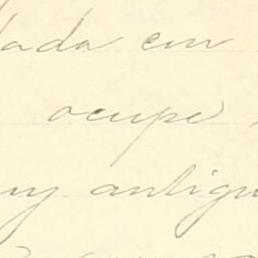 dada en
ocupe
uy antigu